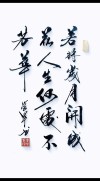 若将岁月开成
花人生何处不
芳华